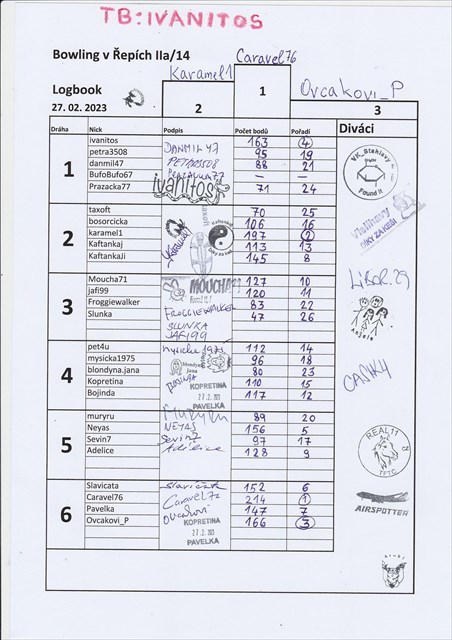 TB:IVANITOS
Bowling v Řepích IIa/14
Caravel76
Karamel1
Logbook
1
Ovcakovi_P
27. 02. 2023
2
3
Dráha Nick Podpis Počet bodů Pořadí Diváci
1
ivanitos ivanitos 163 4
petra3508 PETRA3508 95 19
danmil47 DANMIL47 88 21
BufoBufo67 — —
Prazacka77 PRAZACKA77 71 24
VK_Stehlavy
Found it
2
taxoft taxoft 70 25
bosorcicka 106 16
karamel1 Karamel1 197 2
Kaftankaj Kaftankaj 113 13
KaftankaJi 145 8
DÍKY ZA KEŠI
3
Moucha71 MOUCHA71 127 10
jafi99 JAFI99 120 11
Froggiewalker FROGGIEWALKER 83 22
Slunka SLUNKA 47 26
LIBOR.29
Anjele
4
pet4u 112 14
mysicka1975 mysicka1975 96 18
blondyna.jana blondyna jana 80 23
Kopretina KOPRETINA 110 15
Bojinda BOJINDA 117 12
27. 2. 2023
PAVELKA
CASIKY
5
muryru muryru 89 20
Neyas NEYAS 156 5
Sevin7 Sevin7 97 17
Adelice Adelice 128 9
REAL11
TFTC
6
Slavicata 152 6
Caravel76 Caravel76 214 1
Pavelka 147 7
Ovcakovi_P Ovcakovi 166 3
KOPRETINA
27. 2. 2023
PAVELKA
AIRSPOTTER